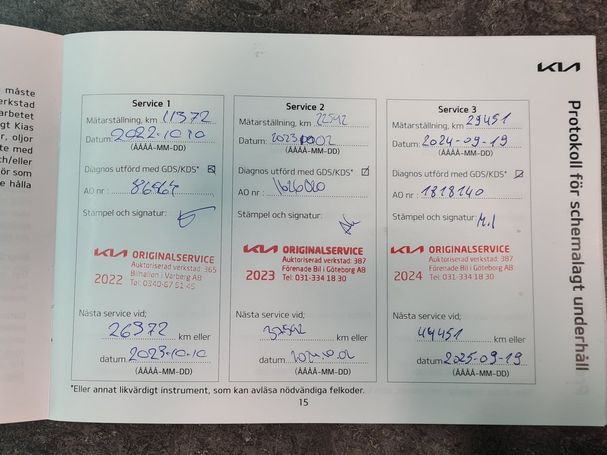 måste
erkstad
arbetet
gt Kias
r, oljor
te med
ch/eller
ör som
e hålla
KIA
Protokoll för schemalagt underhåll
Service 1
Mätarställning, km 11372
Datum: 2022-10-10
(ÅÅÅÅ-MM-DD)
Diagnos utförd med GDS/KDS*
AO nr : 86964
Stämpel och signatur:
KIA ORIGINALSERVICE
Auktoriserad verkstad: 365
2022 Bilhallen i Varberg AB
Tel: 0340-67 51 45
Nästa service vid;
26372 km eller
datum 2023-10-10
(ÅÅÅÅ-MM-DD)
Service 2
Mätarställning, km 22542
Datum: 2023 10 02
(ÅÅÅÅ-MM-DD)
Diagnos utförd med GDS/KDS*
AO nr :
Stämpel och signatur:
KIA ORIGINALSERVICE
Auktoriserad verkstad: 387
2023 Förenade Bil i Göteborg AB
Tel: 031-334 18 30
Nästa service vid;
km eller
datum. 2024.10.02
(ÅÅÅÅ-MM-DD)
Service 3
Mätarställning, km 29451
Datum: 2024-09-19
(ÅÅÅÅ-MM-DD)
Diagnos utförd med GDS/KDS*
AO nr : 1818140
Stämpel och signatur: M.I
KIA ORIGINALSERVICE
Auktoriserad verkstad: 387
2024 Förenade Bil i Göteborg AB
Tel: 031-334 18 30
Nästa service vid;
44451 km eller
datum 2025-09-19
(ÅÅÅÅ-MM-DD)
*Eller annat likvärdigt instrument, som kan avläsa nödvändiga felkoder.
15